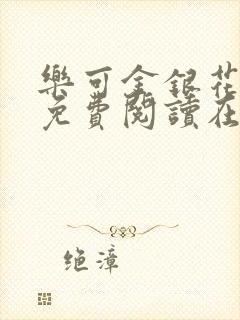 樂可金銀花
免費閱讀在
绝漳